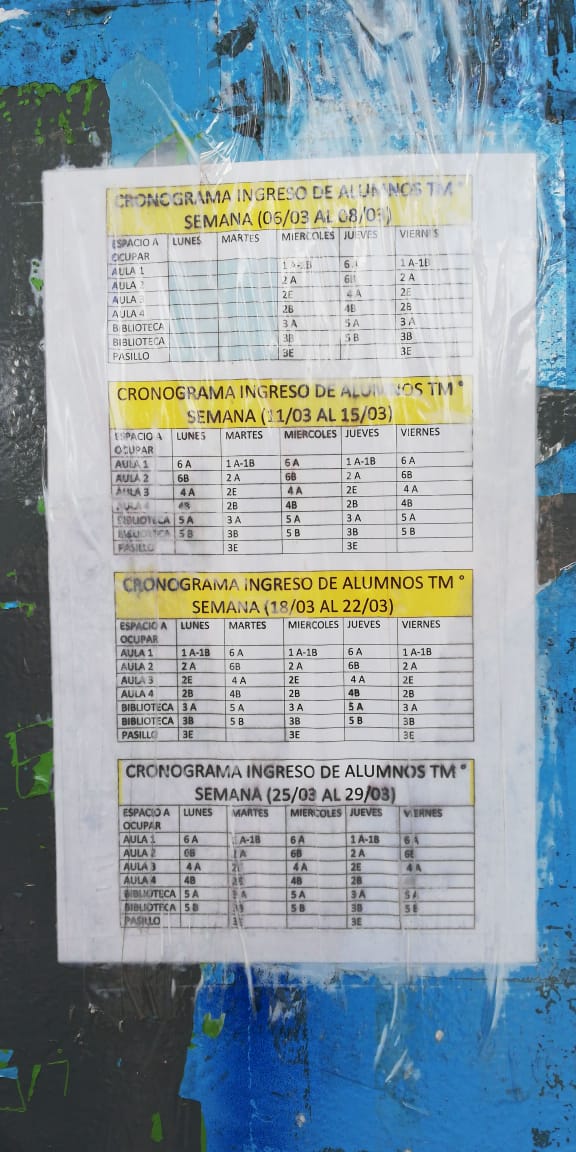 CRONOGRAMA INGRESO DE ALUMNOS TM °
SEMANA (06/03 AL 08/03)
ESPACIO A OCUPAR LUNES MARTES MIERCOLES JUEVES VIERNES
AULA 1 1 A-1B 6 A 1 A-1B
AULA 2 2 A 6B 2 A
AULA 3 2E 4 A 2E
AULA 4 2B 4B 2B
BIBLIOTECA 3 A 5 A 3 A
BIBLIOTECA 3B 5 B 3B
PASILLO 3E 3E
CRONOGRAMA INGRESO DE ALUMNOS TM °
SEMANA (11/03 AL 15/03)
ESPACIO A OCUPAR LUNES MARTES MIERCOLES JUEVES VIERNES
AULA 1 6 A 1 A-1B 6 A 1 A-1B 6 A
AULA 2 6B 2 A 6B 2 A 6B
AULA 3 4 A 2E 4 A 2E 4 A
AULA 4 4B 2B 4B 2B 4B
BIBLIOTECA 5 A 3 A 5 A 3 A 5 A
BIBLIOTECA 5 B 3B 5 B 3B 5 B
PASILLO 3E 3E
CRONOGRAMA INGRESO DE ALUMNOS TM °
SEMANA (18/03 AL 22/03)
ESPACIO A OCUPAR LUNES MARTES MIERCOLES JUEVES VIERNES
AULA 1 1 A-1B 6 A 1 A-1B 6 A 1 A-1B
AULA 2 2 A 6B 2 A 6B 2 A
AULA 3 2E 4 A 2E 4 A 2E
AULA 4 2B 4B 2B 4B 2B
BIBLIOTECA 3 A 5 A 3 A 5 A 3 A
BIBLIOTECA 3B 5 B 3B 5 B 3B
PASILLO 3E 3E 3E
CRONOGRAMA INGRESO DE ALUMNOS TM °
SEMANA (25/03 AL 29/03)
ESPACIO A OCUPAR LUNES MARTES MIERCOLES JUEVES VIERNES
AULA 1 6 A 1 A-1B 6 A 1 A-1B 6 A
AULA 2 6B 2 A 6B 2 A 6B
AULA 3 4 A 2E 4 A 2E 4 A
AULA 4 4B 4B 2B
BIBLIOTECA 5 A 3 A 5 A 3 A 5 A
BIBLIOTECA 5 B 5 B 3B 5 B
PASILLO 3E 3E